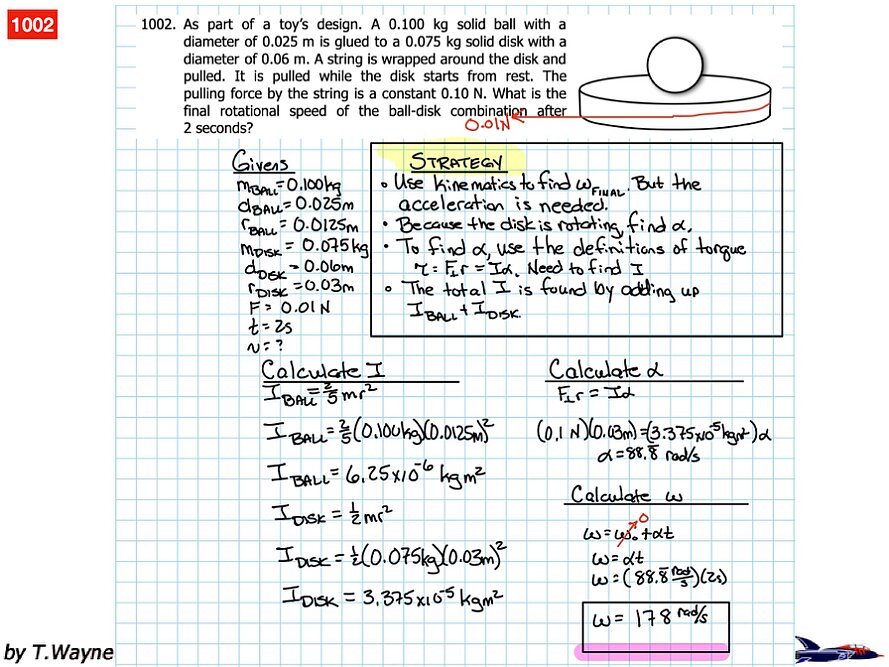 1002
1002. As part of a toy's design. A 0.100 kg solid ball with a
diameter of 0.025 m is glued to a 0.075 kg solid disk with a
diameter of 0.06 m. A string is wrapped around the disk and
pulled. It is pulled while the disk starts from rest. The
pulling force by the string is a constant 0.10 N. What is the
final rotational speed of the ball-disk combination after
2 seconds?
0.01N
Givens
m_BALL = 0.100kg
d_BALL = 0.025m
r_BALL = 0.0125m
m_DISK = 0.075kg
d_DISK = 0.06m
r_DISK = 0.03m
F = 0.01 N
t = 2s
v = ?
STRATEGY
• Use kinematics to find ω_FINAL. But the
acceleration is needed.
• Because the disk is rotating, find α.
• To find α, use the definitions of torque
τ = F⊥r = Iα. Need to find I
• The total I is found by adding up
I_BALL + I_DISK
Calculate I
I_BALL = 2/5 mr²
I_BALL = 2/5 (0.100kg)(0.0125m)²
I_BALL = 6.25x10⁻⁶ kgm²
I_DISK = 1/2 mr²
I_DISK = 1/2 (0.075kg)(0.03m)²
I_DISK = 3.375x10⁻⁵ kgm²
Calculate α
F⊥r = Iα
(0.1 N)(0.03m) = (3.375x10⁻⁵kgm²)α
α = 88.8̅ rad/s
Calculate ω
0
ω = ω₀ + αt
ω = αt
ω = (88.8̅ rad/s)(2s)
ω = 178 rad/s
by T.Wayne